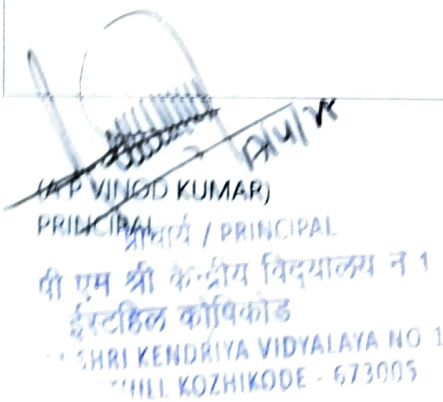 (A P VINOD KUMAR)
PRINCIPAL
प्राचार्य / PRINCIPAL
पी एम श्री केन्द्रीय विद्यालय न 1
ईस्टहिल कोषिकोड
SHRI KENDRIYA VIDYALAYA NO 1
HILL KOZHIKODE - 673005